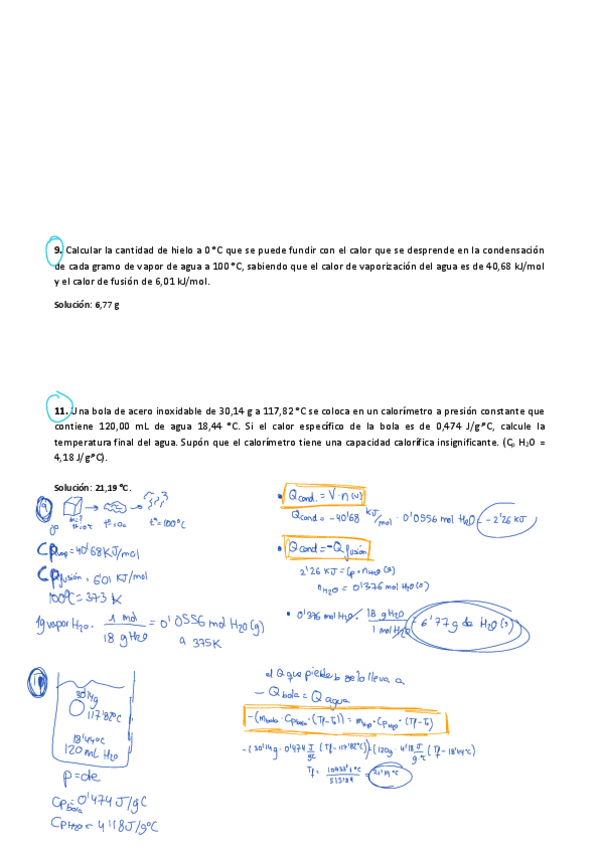 9. Calcular la cantidad de hielo a 0°C que se puede fundir con el calor que se desprende en la condensación
de cada gramo de vapor de agua a 100°C, sabiendo que el calor de vaporización del agua es de 40,68 kJ/mol
y el calor de fusión de 6,01 kJ/mol.
Solución: 6,77 g
11. Una bola de acero inoxidable de 30,14 g a 117,82°C se coloca en un calorímetro a presión constante que
contiene 120,00 mL de agua 18,44 °C. Si el calor específico de la bola es de 0,474 J/g°C, calcule la
temperatura final del agua. Supón que el calorímetro tiene una capacidad calorífica insignificante. (Cp H2O =
4,18 J/g°C).
Solución: 21,19 °C.
9
t°=100°C
Cp vap = 40'68 KJ/mol
Cp fusión = 6'01 KJ/mol
100°C = 373 K
1g vapor H2O · 1 mol / 18 g H2O = 0'0556 mol H2O (g)
a 375K
• Qcond. = V·n (v)
Qcond = -40'68 KJ/mol · 0'0556 mol H2O = -2'26 KJ
• Qcond = -Qfusión
2'26 KJ = Cp · nH2O (s)
nH2O = 0'376 mol H2O (s)
• 0'376 mol H2O · 18 g H2O / 1 mol H2O = 6'77 g de H2O (s)
11
30'14g
117'82°C
18'44°C
120 mL H2O
p = cte
Cp bola = 0'474 J/gC
Cp H2O = 4'18 J/g°C
el Q que pierde b se lo lleva a
- Qbola = Q agua
-(mbola · Cpbola · (Tf - To)) = mH2O · CpH2O · (Tf - To)
-(30'14g · 0'474 J/gC (Tf - 117'82°C)) = (120g · 4'18 J/g·C (Tf - 18'44°C)
Tf = = 21'19 °C